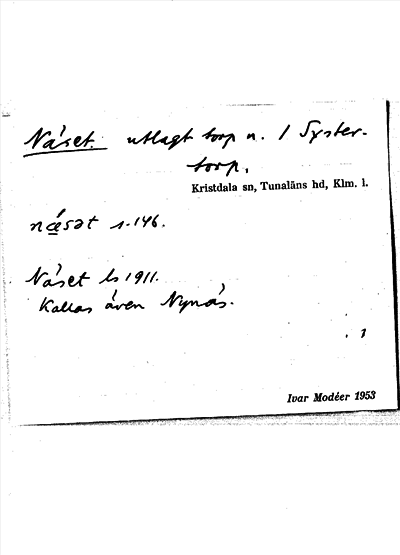 Näset. utlagt torp u. 1 Syster-
torp.
Kristdala sn, Tunaläns hd, Klm. l.
næ̀sət s. 146.
Näset ls 1911.
Kallas även Nynäs.
1
Ivar Modéer 1953